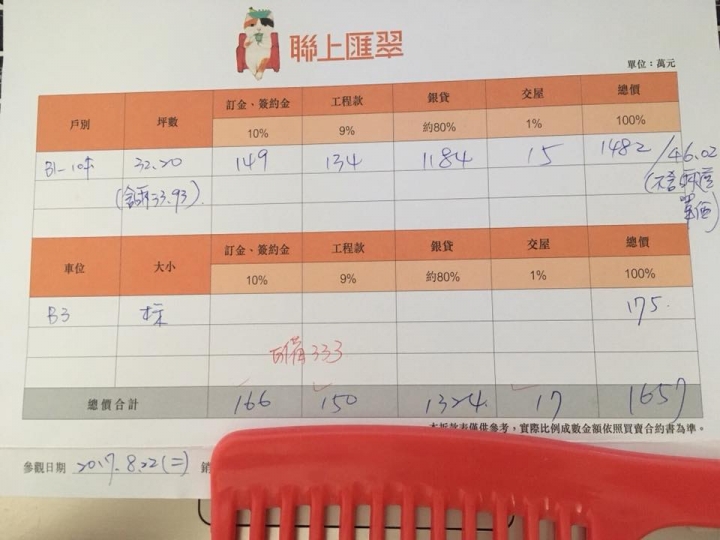 聯上匯翠
單位：萬元
戶別 坪數 訂金、簽約金 工程款 銀貸 交屋 總價
10% 9% 約80% 1% 100%
32.20 149 134 1184 15 1482 / 46.02
33.93)
車位 大小 訂金、簽約金 工程款 銀貸 交屋 總價
10% 9% 約80% 1% 100%
B3 175
333
總價合計 166 150 1324 17 1657
本拆款表僅供參考，實際比例成數金額依照買賣合約書為準。
參觀日期 2017.8.22(二) 銷